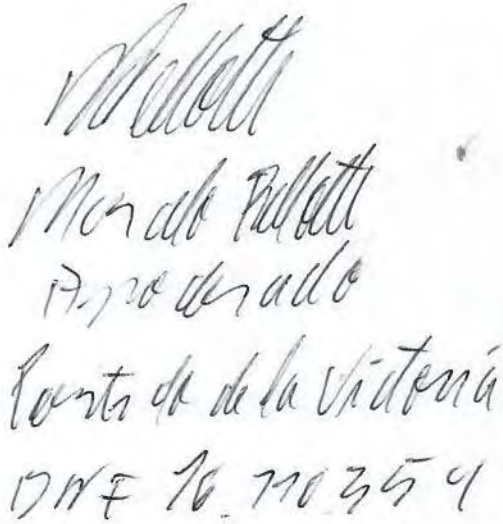 Marcelo Bellotti
Apoderado
Partido de la Victoria
DNI 10.110.354